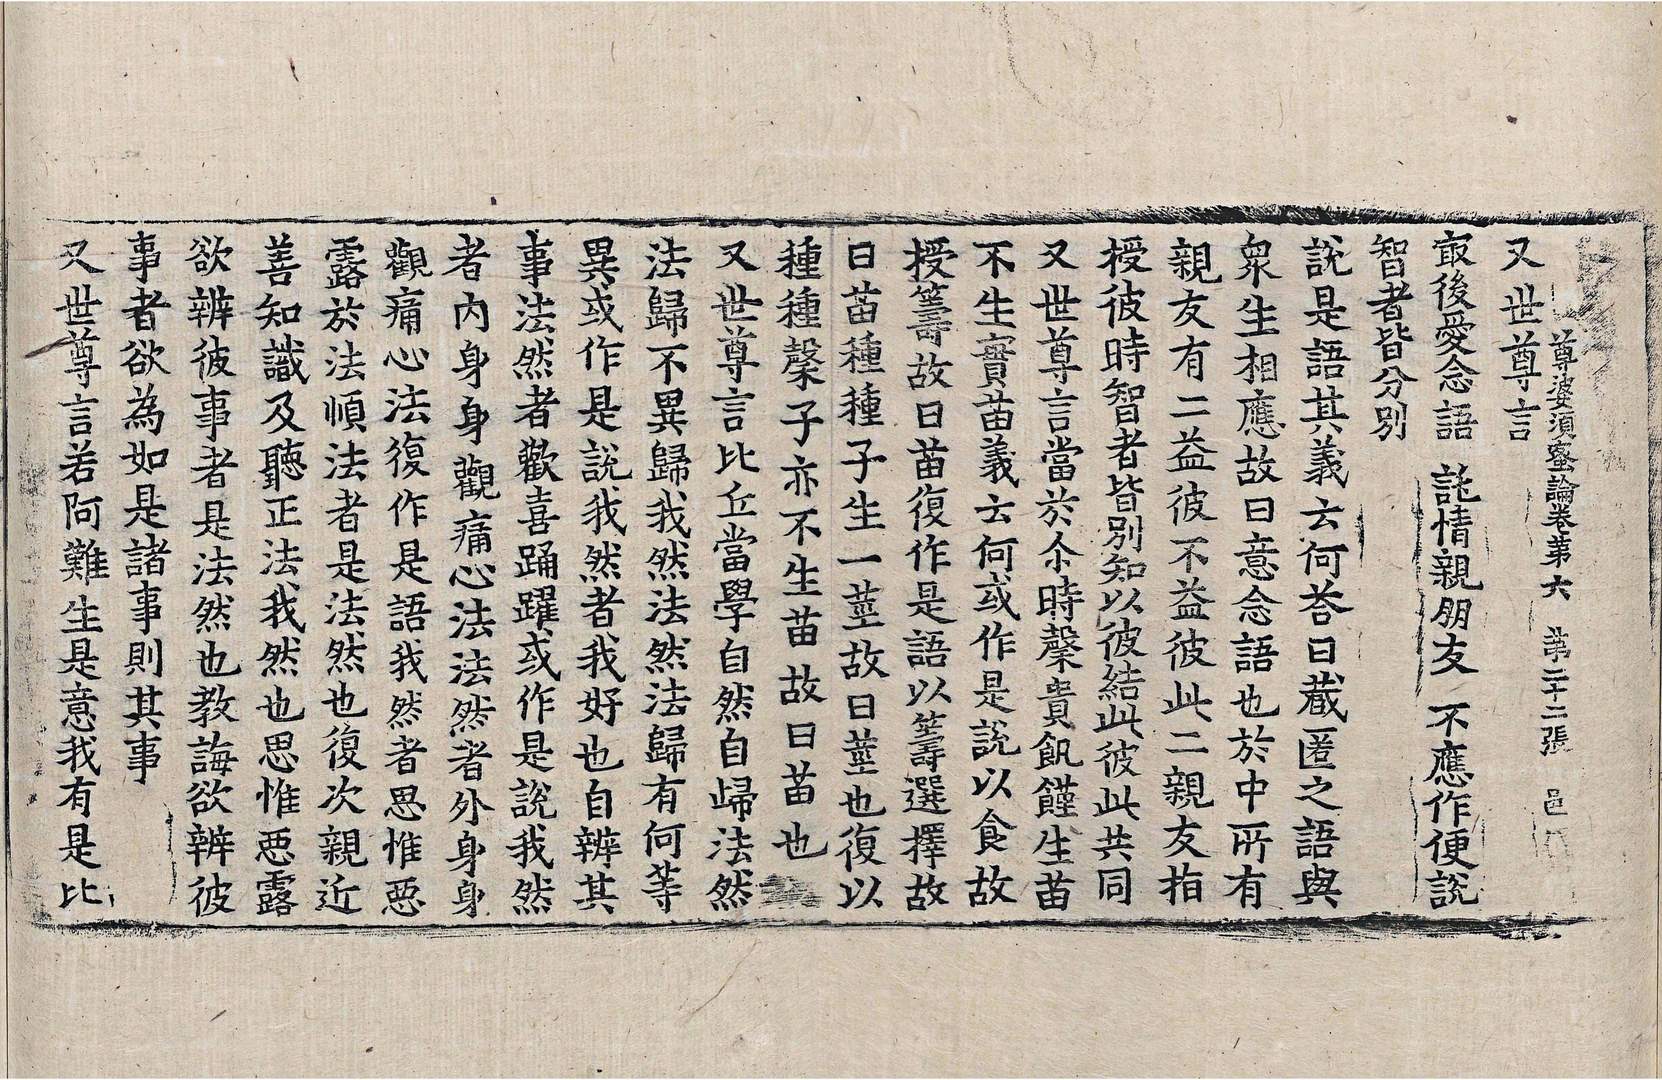 尊婆須蜜論卷第六　第二十二張　邑
又世尊言
㝡後愛念語　託情親朋友　不應作便說
智者皆分別
說是語其義云何荅曰藏匿之語與
衆生相應故曰意念語也於中所有
親友有二益彼不益彼此二親友指
授彼時智者皆別知以彼結此彼此共同
又世尊言當於尒時䅽貴飢饉生苗
不生實苗義云何或作是說以食故
授籌故曰苗復作是語以籌選擇故
曰苗種種子生一莖故曰莖也復以
種種䅽子亦不生苗故曰苗也
又世尊言比丘當學自然自歸法然
法歸不異歸我然法然法歸有何等
異或作是說我然者我好也自辨其
事法然者歡喜踊躍或作是說我然
者內身身觀痛心法法然者外身身
觀痛心法復作是語我然者思惟惡
露於法順法者是法然也復次親近
善知識及聽正法我然也思惟惡露
欲辨彼事者是法然也教誨欲辨彼
事者欲為如是諸事則其事
又世尊言若阿難生是意我有是比